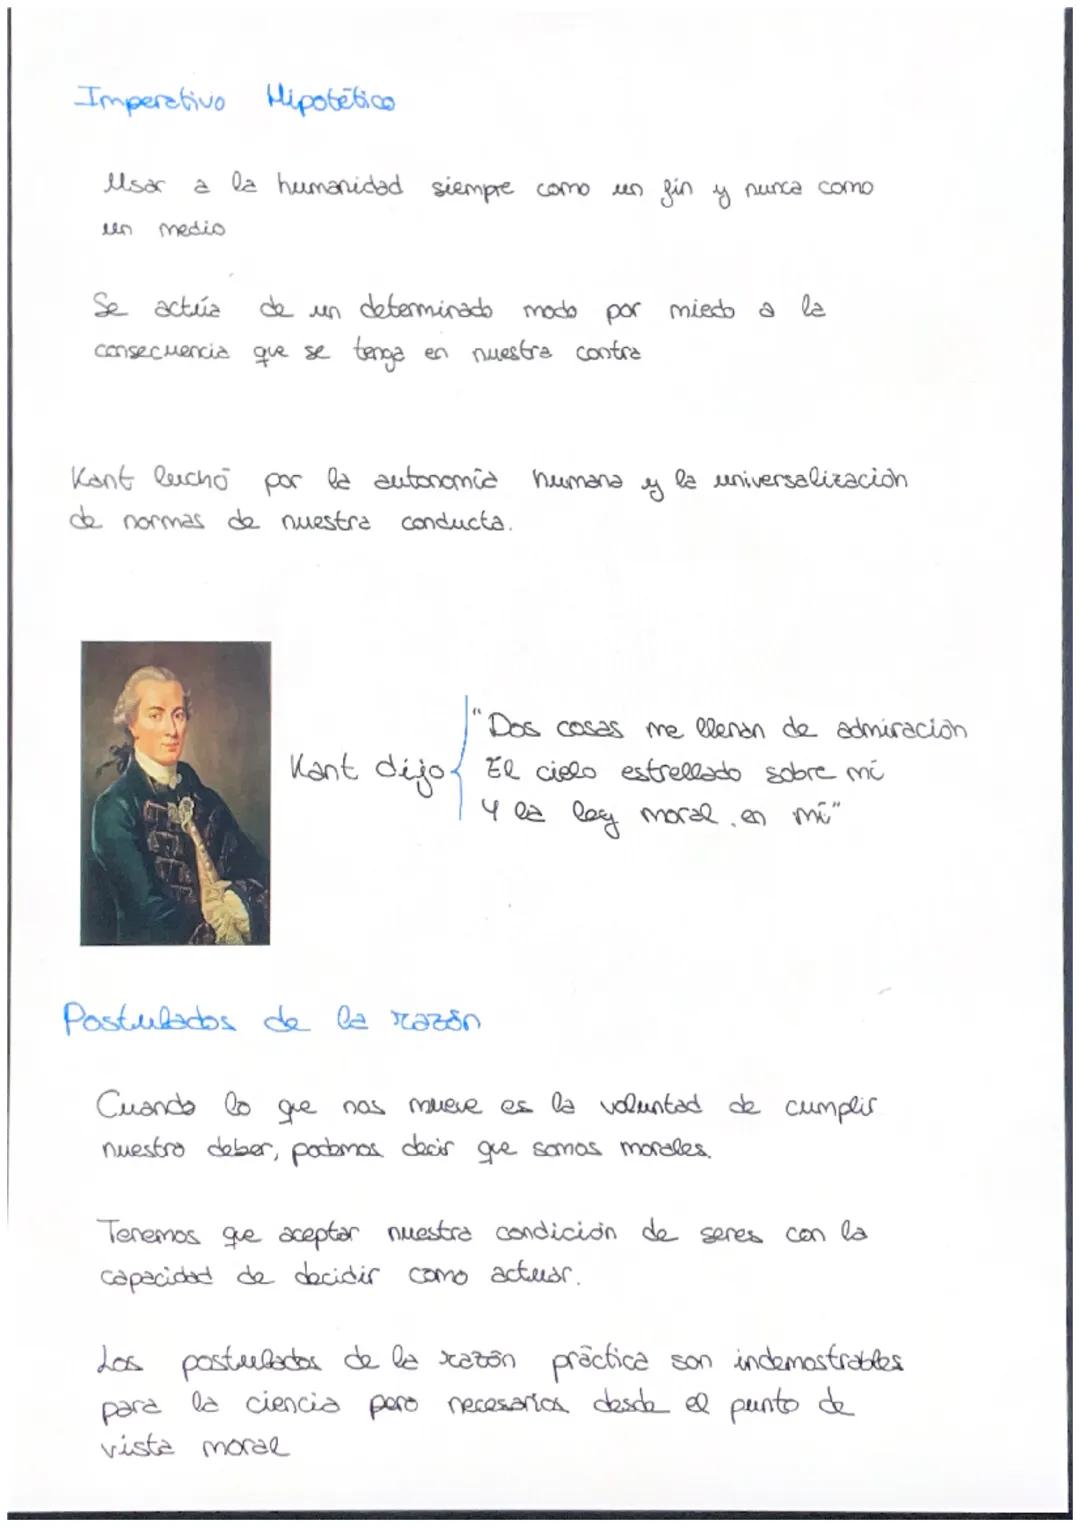 Imperativo Hipotético
Usar a la humanidad siempre como un fin y nunca como
un medio
Se actúa de un determinado modo por miedo a la
consecuencia que se tenga en nuestra contra
Kant luchó por la autonomía humana y la universalización
de normas de nuestra conducta.
Kant dijo
"Dos cosas me llenan de admiración
El cielo estrellado sobre mí
Y la ley moral en mí"
Postulados de la razón
Cuando lo que nos mueve es la voluntad de cumplir
nuestro deber, podemos decir que somos morales.
Tenemos que aceptar nuestra condición de seres con la
capacidad de decidir como actuar.
Los postulados de la razón práctica son indemostrables
para la ciencia pero necesarios desde el punto de
vista moral